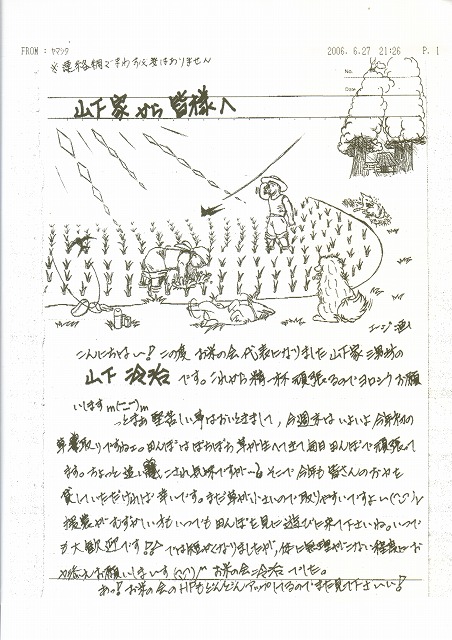 FROM : ヤマシタ
2006. 6.27 21:26
P. 1
※連絡網でまわす必要はありません
No.
Date
山下家から皆様へ
こんにちはー!この度 お米の会代表になりました山下家三男坊の
山下 冷治 です。これから精一杯頑張るのでヨロシクお願
いしますm(_ _)m
っとまあ堅苦しい事はおいときまして、今週末はいよいよ今年初の
草取りですねェ。田んぼはぼちぼち草が生えてきて毎日田んぼで頑張って
ます。ちょっと追い こされ気味ですが…。そこで今年も皆さんの力を
貸していただければ幸いです。まだ草が小さいので取りやすいですよい(^_^)v
援農がむずかしい方もいつでも田んぼを見に遊びに来て下さいね。いつで
も大歓迎です!! では短かくなりましたが、体に無理がこない程度にお
力添えお願いしまいす(^_^)/~ お米の会 冷治 でした。
あっ!お米の会のHPもどんどんアップしてるのでまた見て下さいい!